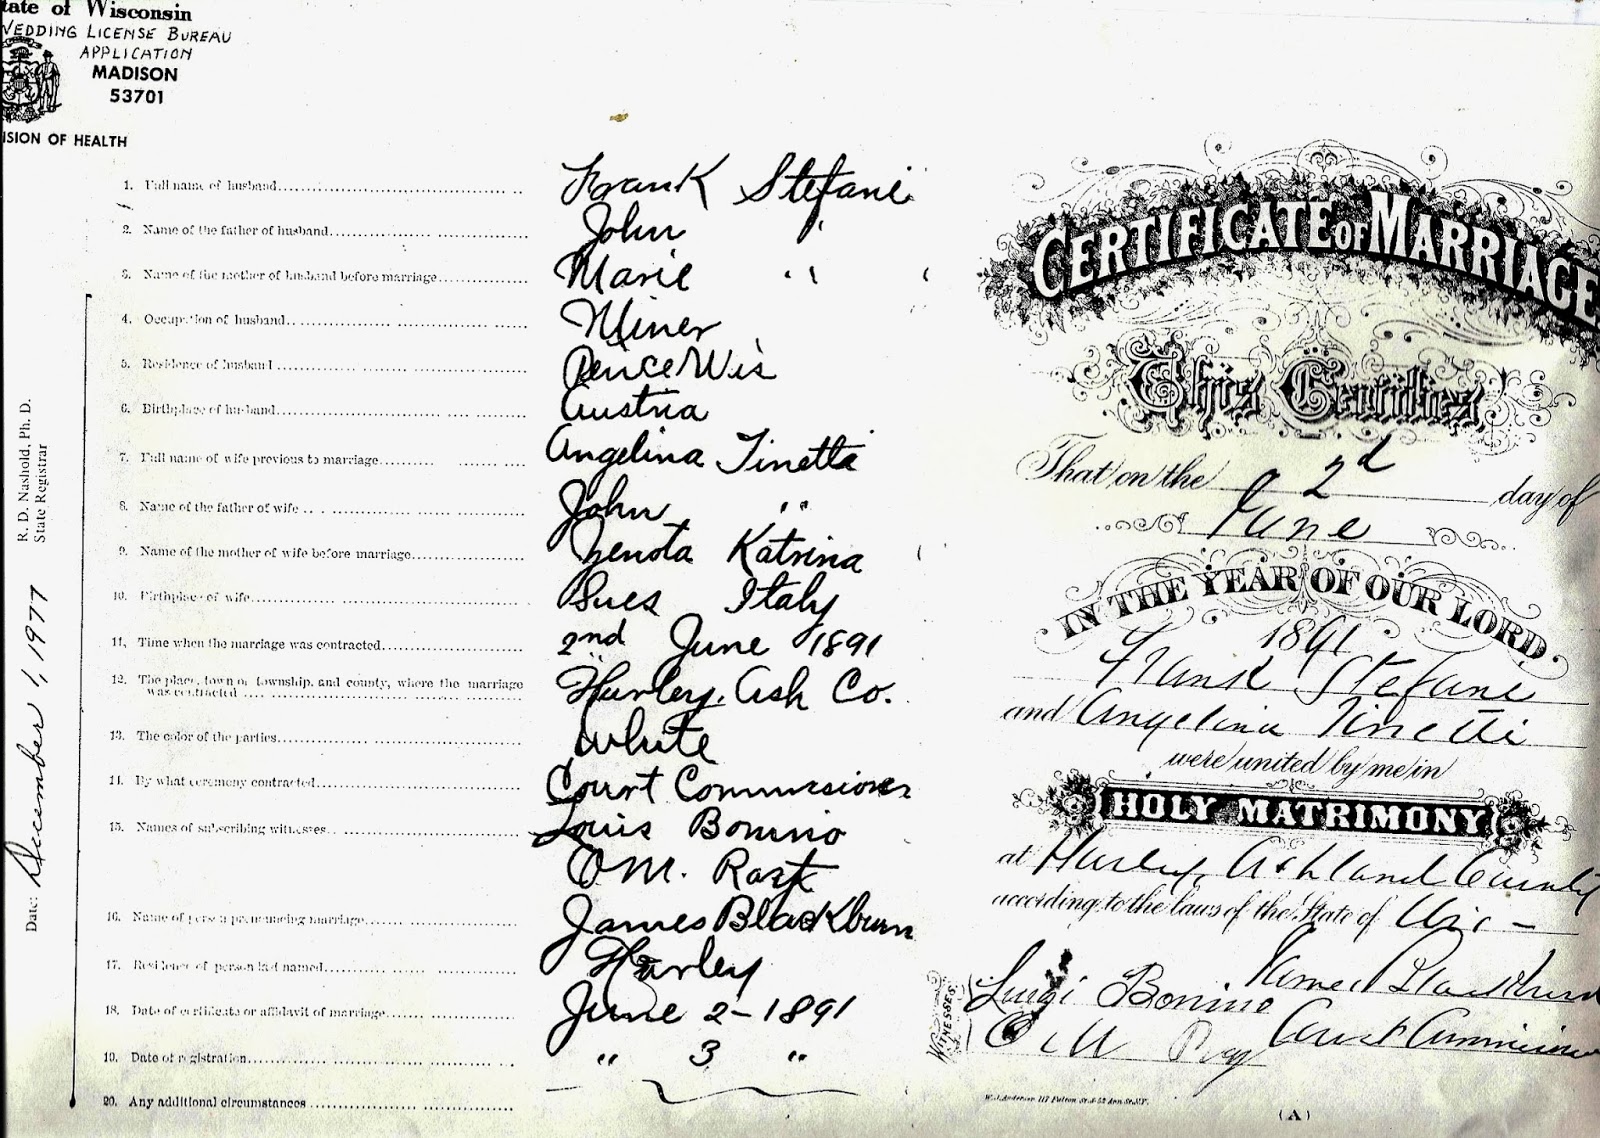 tate of Wisconsin
WEDDING LICENSE BUREAU
APPLICATION
MADISON
53701
ISION OF HEALTH
1. Full name of husband Frank Stefani
2. Name of the father of husband John "
3. Name of the mother of husband before marriage Marie "
4. Occupation of husband Miner
5. Residence of husband Pence Wis
6. Birthplace of husband Austria
7. Full name of wife previous to marriage Angelina Tinetta
8. Name of the father of wife John "
9. Name of the mother of wife before marriage Katrina
10. Birthplace of wife Italy
11. Time when the marriage was contracted 2nd June 1891
12. The place, town or township, and county, where the marriage
was contracted Hurley, Ash Co.
13. The color of the parties White
14. By what ceremony contracted Court Commissioner
15. Names of subscribing witnesses Louis Bonino
O.M.
16. Name of person pronouncing marriage James Blackburn
17. Residence of person last named Hurley
18. Date of certificate or affidavit of marriage June 2-1891
19. Date of registration " 3 "
20. Any additional circumstances
R. D. Nashold, Ph. D.
State Registrar
Date: December 1, 1977
CERTIFICATE OF MARRIAGE
This Certifies
That on the 2d day of
June
IN THE YEAR OF OUR LORD.
1891
Frank Stefani
and Angelina Tinetti
were united by me in
HOLY MATRIMONY
at Hurley, Ashland County
according to the laws of the State of Wis-
James Blackburn
WITNESSES. Luigi Bonino
Court Commissioner
(A)